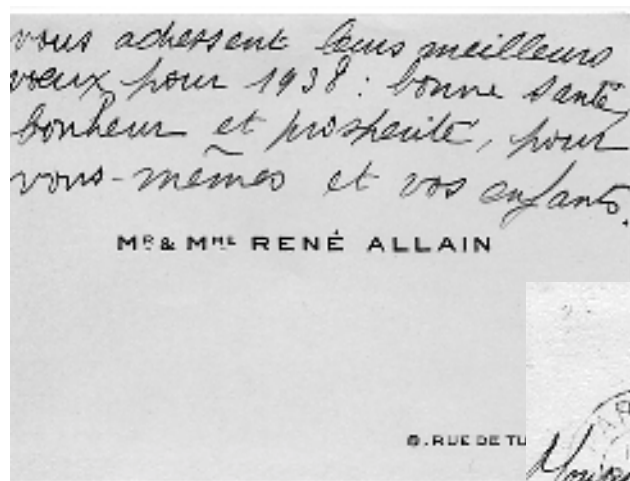 vous adressent leurs meilleurs
vœux pour 1938 : bonne santé,
bonheur et prospérité, pour
vous-mêmes et vos enfants.
MR & MME RENÉ ALLAIN
RUE DE TU